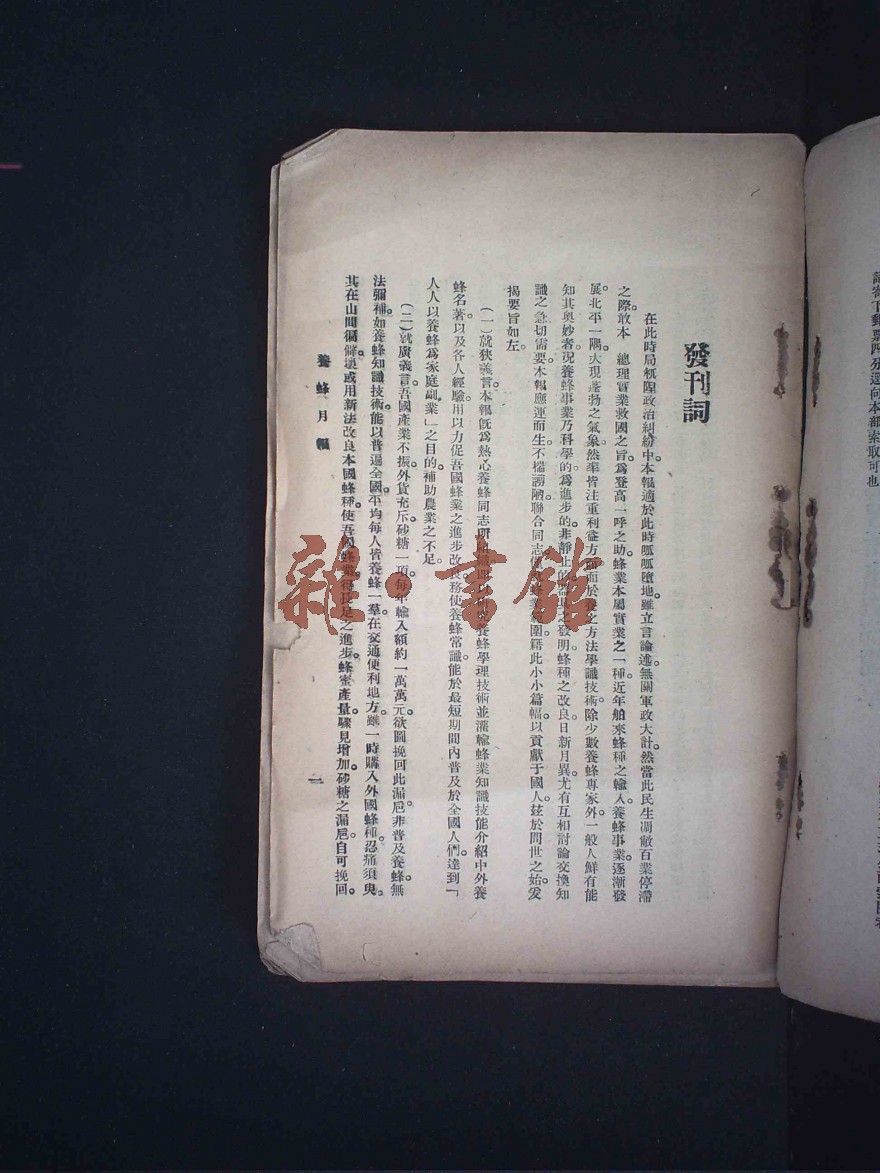 請寄下郵票四分逕向本部索取可也
發刊詞
在此時局杌隉政治糾紛中本報適於此時呱呱墮地。雖立言論述。無關軍政大計。然當此民生凋敝百業停滯
之際。敢本 總理實業救國之旨。為登高一呼之助。蜂業本屬實業之一種。近年舶來蜂種之輸入。養蜂事業逐漸發
展。北平一隅。大現蓬勃之氣象。然率皆注重利益方面。而於養之方法學識技術。除少數養蜂專家外。一般人鮮有能
知其奧妙者。況養蜂事業。乃科學的。為進步的。非靜止的。之發明蜂種之改良。日新月異。尤有互相討論交換知
識之急切需要。本報應運而生。不揣謭陋。聯合同志。範圍。藉此小小篇幅。以貢獻于國人。茲於問世之始。爰
揭要旨如左。
(一)就狹義言。本報旣為熱心養蜂同志所組織。養蜂學理技術。並灌輸蜂業知識技能。介紹中外養
蜂名著。以及各人經驗。用以力促吾國蜂業之進步改良。務使養蜂常識。能於最短期間內。普及於全國人們。達到「
人人以養蜂為家庭副業」之目的。補助農業之不足。
(二)就廣義言。吾國產業不振。外貨充斥。砂糖一項。每年輸入額約一萬萬元。欲圖挽回此漏巵。非普及養蜂。無
法彌補。如養蜂知識技術。能以普遍全國。平均每人皆養蜂一羣。在交通便利地方。雖一時購入外國蜂種。忍痛須臾。
其在山間僻壤。或用新法改良本國蜂種。使吾國蜂業。得長足之進步。蜂蜜產量。驟見增加。砂糖之漏巵。自可挽回。
養蜂月報
一
雜·書館